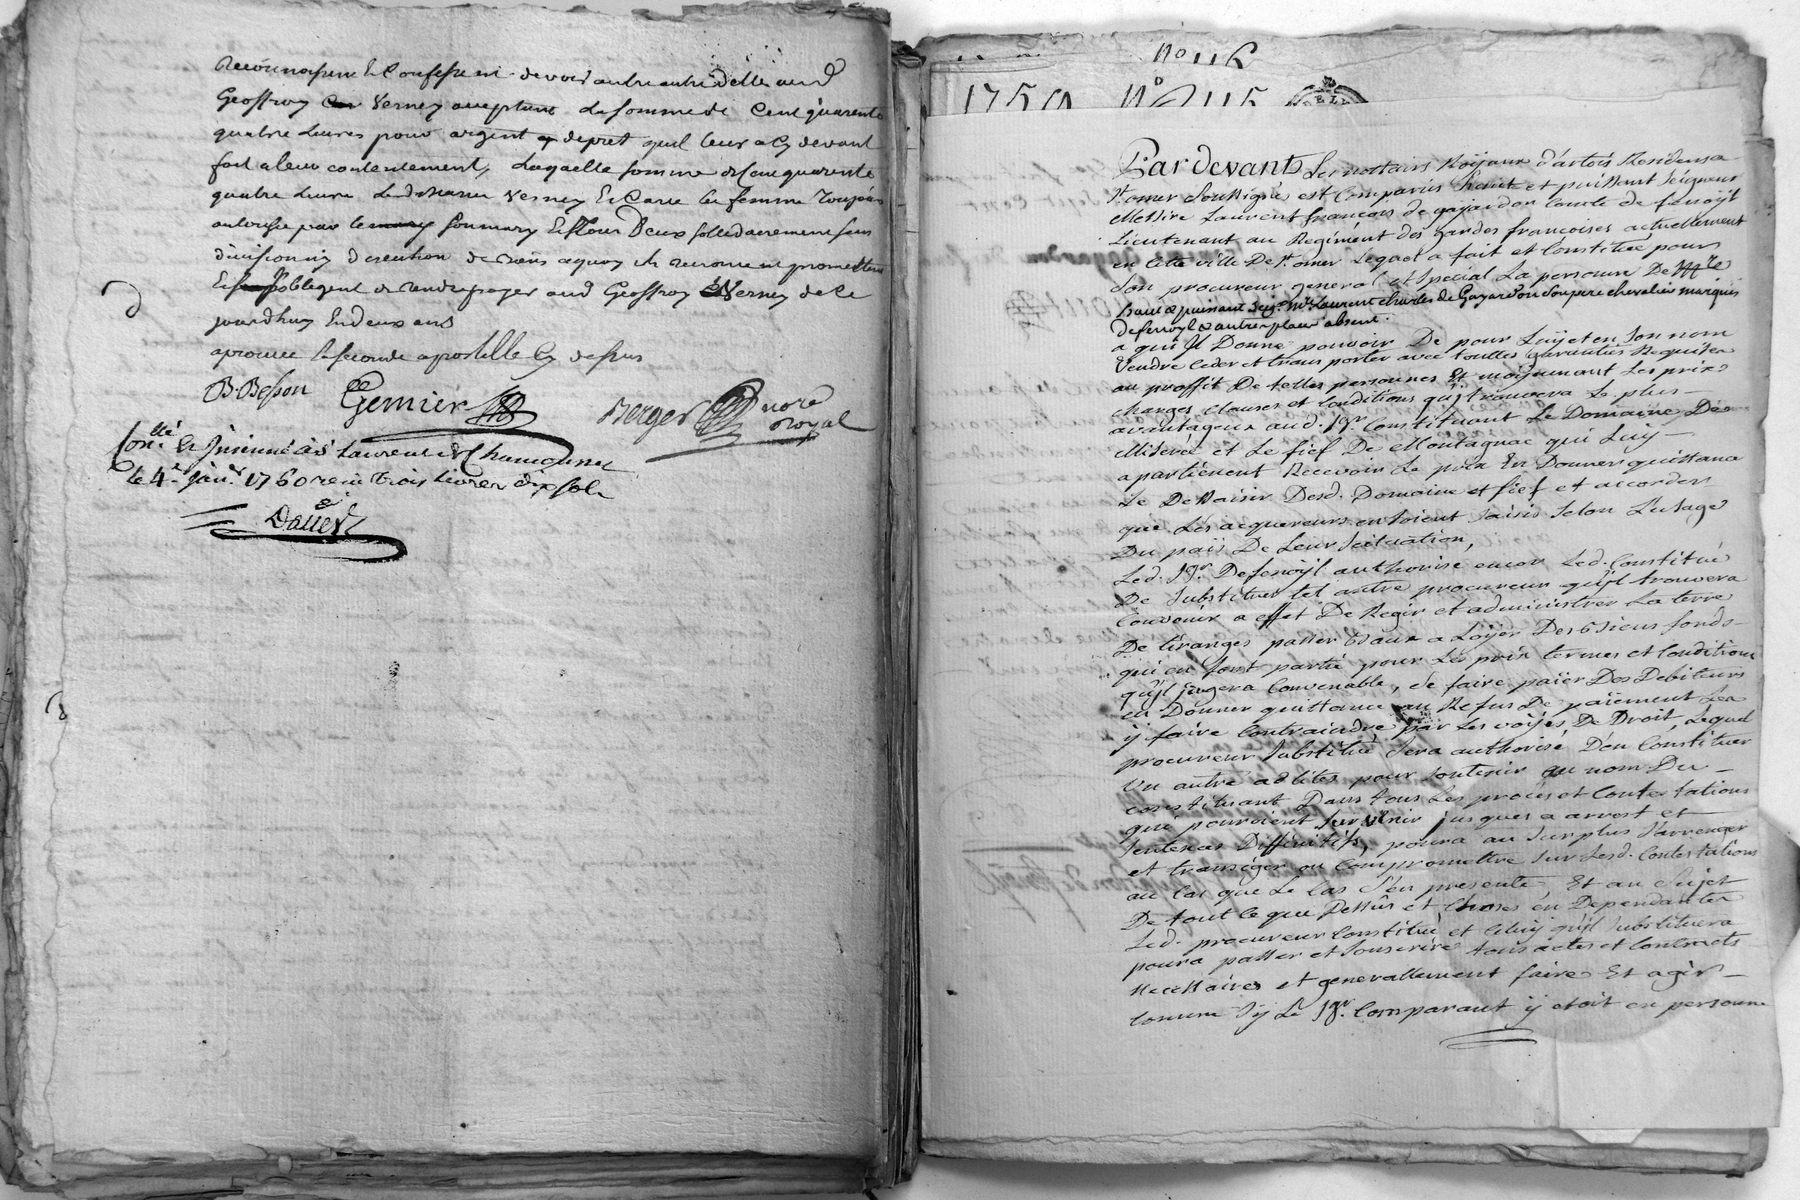 reconnoissent et confessent devoir
Geoffroy Verney acceptant la somme de Cent quarente
quatre livres pour argent de pret quil leur a cy devant
fait a leur contentement, Laquelle somme de Cent quarente
quatre livres Verney Et sa femme Toujours
autorisée par son mary Et sollidairement sans
division ny discution de biens a quoy ils renoncent promettent
Et s'obligent de rendre payer aud Geoffroy Verney de ce
jourdhuy En deux ans
aprouvé la seconde apostille cy dessus
B. Besson Gemier Berger nore
royal
Con.llé Et Insinué à St Laurent de Chamousset
Le 4e janr 1760 reçu Trois Livres dix sols
No 116
1759 No 115
Pardevant Les nottaires Roÿaux d'artois Residens a
St omer Soussignés est Comparus haut et puissant Seigneur
Messire Laurent françois de gayardon Comte de fenoÿl
Lieutenant au Regiment des gardes francoises actuellement
en cette ville De St omer Lequel a fait et Constitué pour
Son procureur general et Special La personne De Mre
haut & puissant Seigr Mre Laurent charles de Gayardon Son pere chevalier marquis
de fenoyl & autres places absent.
a qui il Donne pouvoir De pour Luÿ et en Son nom
Vendre Ceder et transporter avec touttes Garanties Requises
au proffit De telles personnes Et moÿennant Les prix
charges, clauses et Conditions qu'il trouvera Le plus
avantageux aud. Sgr Constituant Le Domaine De
Miseré et Le fief De Montagnac qui Luÿ
apartienent Recevoir Le prix En Donner quittance
Se Dessaisir Desd. Domaine et fief et accorder
que Les acquereurs en soient Saisis Selon L'usage
Du païs De Leur Scituation,
Led. Sgr De fenoÿl authorise encor Led. Constitué
De Substituer tel autre procureur qu'il trouvera
Convenir a effet De Regir et administrer La terre
De tiranges passer Baux a Loÿer Des Biens fonds
qui en font partie pour Les prix termes et Conditions
qu'il jugera Convenable, se faire païer Des Debiteurs
en Donner quittance au Refus De païement Les
ÿ faire Contraindre par Les voÿes De Droit, Lequel
procureur Substitué Sera authorisé D'en Constituer
Un autre ad lites pour soutenir au nom Du
constituant Dans tous Les procès et Contestations
qui pouroient Survenir jusques a arrest et
Sentences Diffinitifs, poura au Surplus S'arrenger
et transiger ou Compromettre Sur Lesd. Contestations
au cas que Le Cas S'en presente, Et au Sujet
De tout ce que Dessus et choses en Dependantes
Led. procureur Constitué et Celuÿ qu'il Substituera
poura passer et Souscrire tous actes et Contracts
Necessaires et generallement faire Et agir
Comme Sÿ Le Sgr. Comparant ÿ etoit en personne